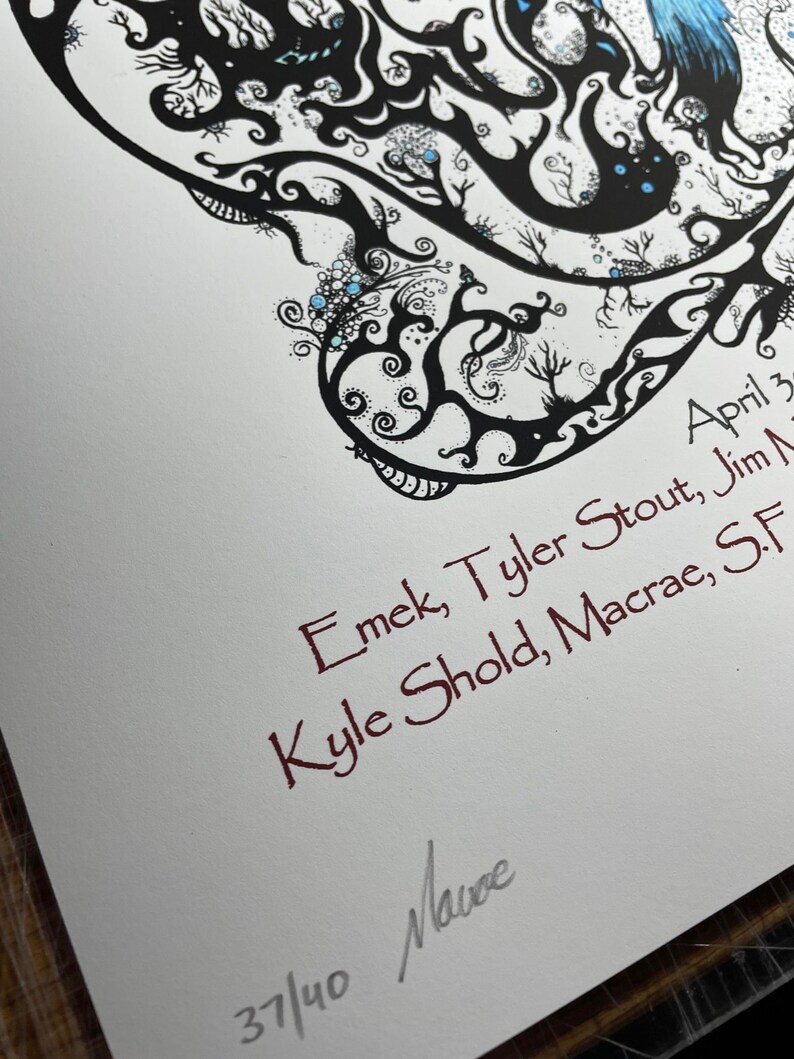 April 30
Emek, Tyler Stout, Jim
Kyle Shold, Macrae, S.F
Macrae
37/40